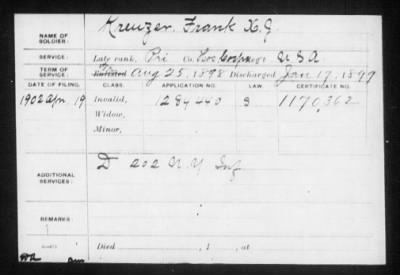 NAME OF SOLDIER: Kreuzer, Frank X. G.
SERVICE: Late rank, Pri Co. Hos. Corps Reg't U S A
TERM OF SERVICE: Enlisted Aug 25, 1898 Discharged Jan 17, 1899
DATE OF FILING. CLASS. APPLICATION NO. LAW. CERTIFICATE NO.
1902 Apr. 19 Invalid, 1284440 G 1170,362
Widow,
Minor,
ADDITIONAL SERVICES: D 202 N Y Inf
REMARKS:
Died , 1 , at